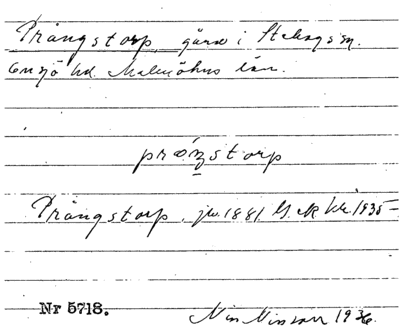 Prångstorp, gård i Stehags sn.
Onsjö hd. Malmöhus län.
prángstorp
Prångstorp, jb. 1881 G.s.k. kb. 1935 –
Nr 5718.
Nils Nilsson 1936.